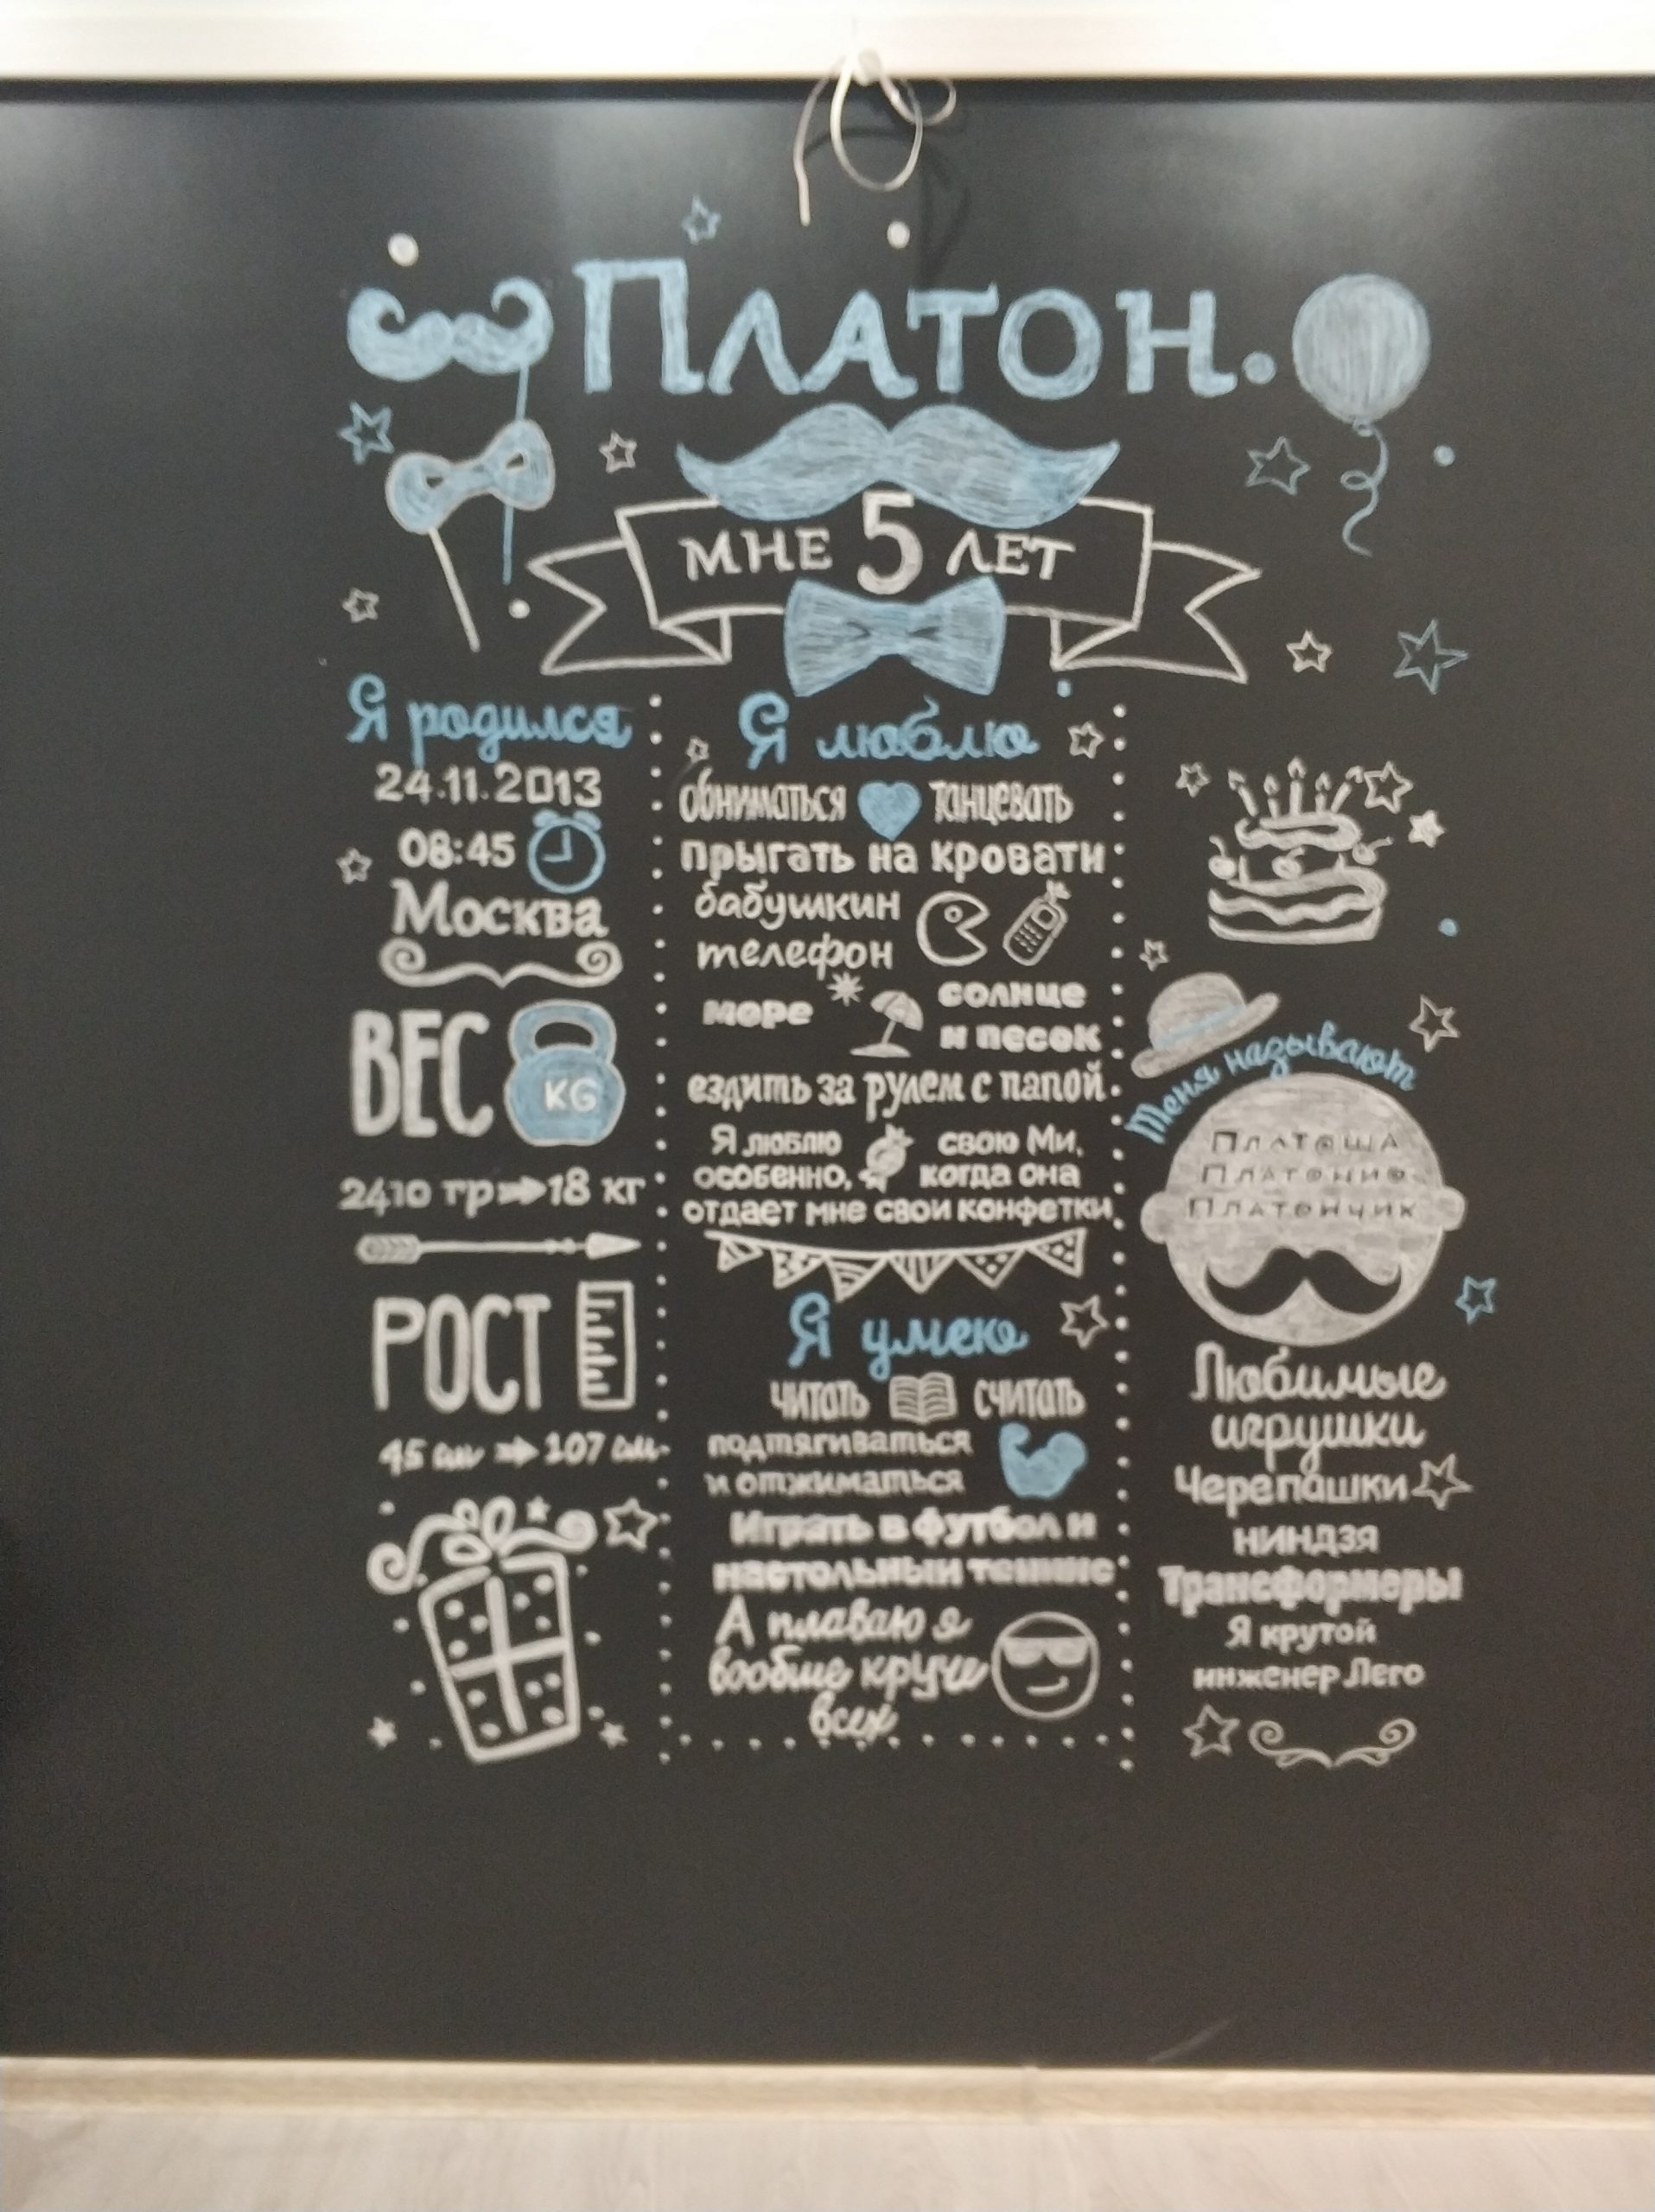 Платон.
мне 5 лет
Я родился
24.11.2013
08:45
Москва
ВЕС
KG
2410 гр 18 кг
РОСТ
45 см 107 см
Я люблю
обниматься танцевать
прыгать на кровати
бабушкин
телефон
море
солнце
и песок
ездить за рулем с папой
Я люблю свою Ми,
особенно, когда она
отдает мне свои конфетки
Я умею
читать считать
подтягиваться
и отжиматься
Играть в футбол и
настольный теннис
А плаваю я
вообще круче
всех
меня называют
Платоша
Платонио
Платончик
Любимые
игрушки
Черепашки
ниндзя
Трансформеры
Я крутой
инженер Лего